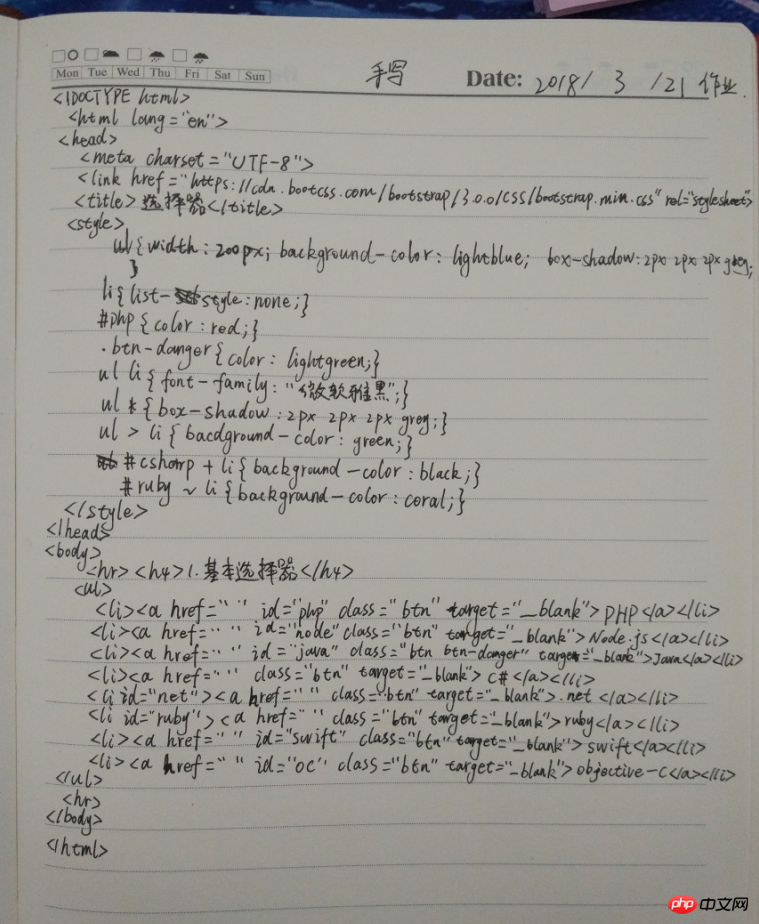 Mon Tue Wed Thu Fri Sat Sun
手写 Date: 2018/ 3 /21 作业.
<!DOCTYPE html>
<html lang="en">
<head>
<meta charset="UTF-8">
<link href="https://cdn.bootcss.com/bootstrap/3.0.0/css/bootstrap.min.css" rel="stylesheet">
<title>选择器</title>
<style>
ul{width:200px; background-color: lightblue; box-shadow:2px 2px 2px grey;
}
li{list-style:none;}
#php{color:red;}
.btn-danger{color: lightgreen;}
ul li{font-family:"微软雅黑";}
ul *{box-shadow:2px 2px 2px grey;}
ul > li{bacdground-color: green;}
#csharp + li{background-color:black;}
#ruby ~ li{background-color: coral;}
</style>
</head>
<body>
<hr><h4>1.基本选择器</h4>
<ul>
<li><a href=" " id="php" class="btn" target="_blank">PHP</a></li>
<li><a href=" " id="node" class="btn" target="_blank">Node.js</a></li>
<li><a href=" " id="java" class="btn btn-danger" target="_blank">Java</a></li>
<li><a href=" " class="btn" target="_blank">C#</a></li>
<li id="net"><a href=" " class="btn" target="_blank">.net</a></li>
<li id="ruby"><a href=" " class="btn" target="_blank">ruby</a></li>
<li><a href=" " id="swift" class="btn" target="_blank">swift</a></li>
<li><a href=" " id="oc" class="btn" target="_blank">objective-C</a></li>
</ul>
<hr>
</body>
</html>
php中文网